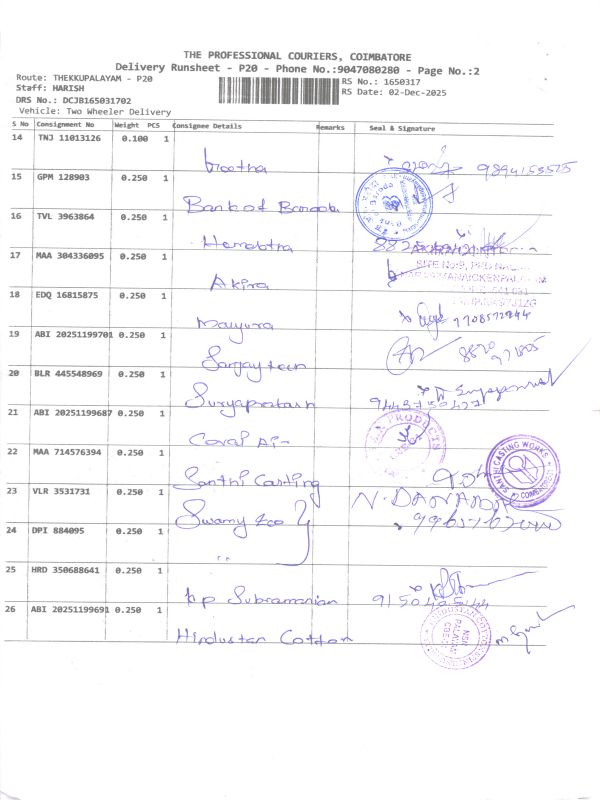 THE PROFESSIONAL COURIERS, COIMBATORE
Delivery Runsheet - P20 - Phone No.:9047080280 - Page No.:2
Route: THEKKUPALAYAM - P20
RS No.: 1650317
Staff: HARISH
RS Date: 02-Dec-2025
DRS No.: DCJB165031702
Vehicle: Two Wheeler Delivery
S No Consignment No Weight PCS Consignee Details Remarks Seal & Signature
14 TNJ 11013126 0.100 1
9894153575
15 GPM 128903 0.250 1
Bank of Baroda
16 TVL 3963864 0.250 1
Hemabtra
17 MAA 304336095 0.250 1
Akira
18 EDQ 16815875 0.250 1
Mayura
9708572844
19 ABI 20251199701 0.250 1
20 BLR 445548969 0.250 1
Suryaprakash
21 ABI 20251199687 0.250 1
Coval Ai-
22 MAA 714576394 0.250 1
Santhi Casting
SANTHI CASTING WORKS
23 VLR 3531731 0.250 1
Swamy &co
24 DPI 884095 0.250 1
25 HRD 350688641 0.250 1
kp Subramanian
26 ABI 20251199691 0.250 1
Hindustan Cotton